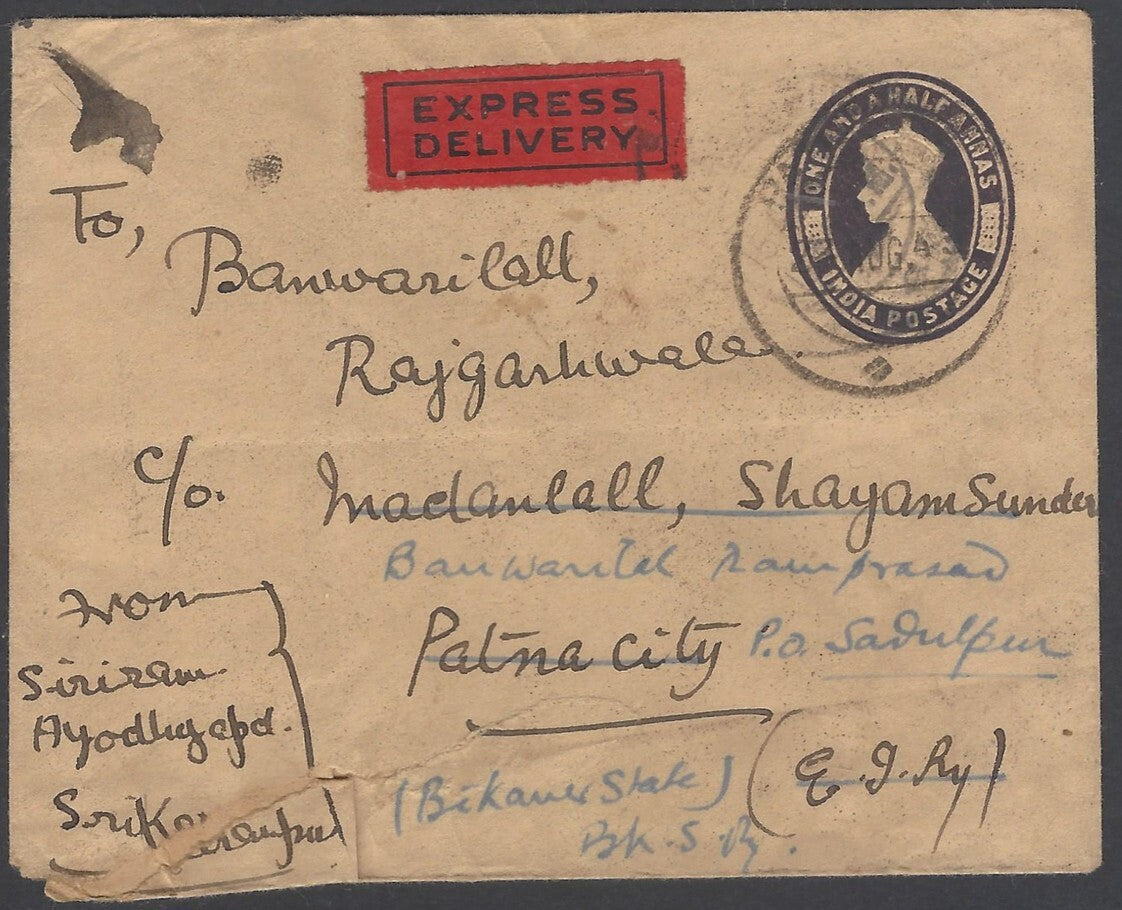 EXPRESS
DELIVERY
ONE AND A HALF ANNAS
INDIA POSTAGE
UG. 4
To,
Banwarilall,
Rajgarhwala.
c/o. Madanlall, ShayamSunder
Banwarilal Ramprasad
Patna City P.o. Sadulpur
(E. I. Ry)
(Bikaner State)
Bk. S. Ry.
From
Siriram
Ayodhyapd.